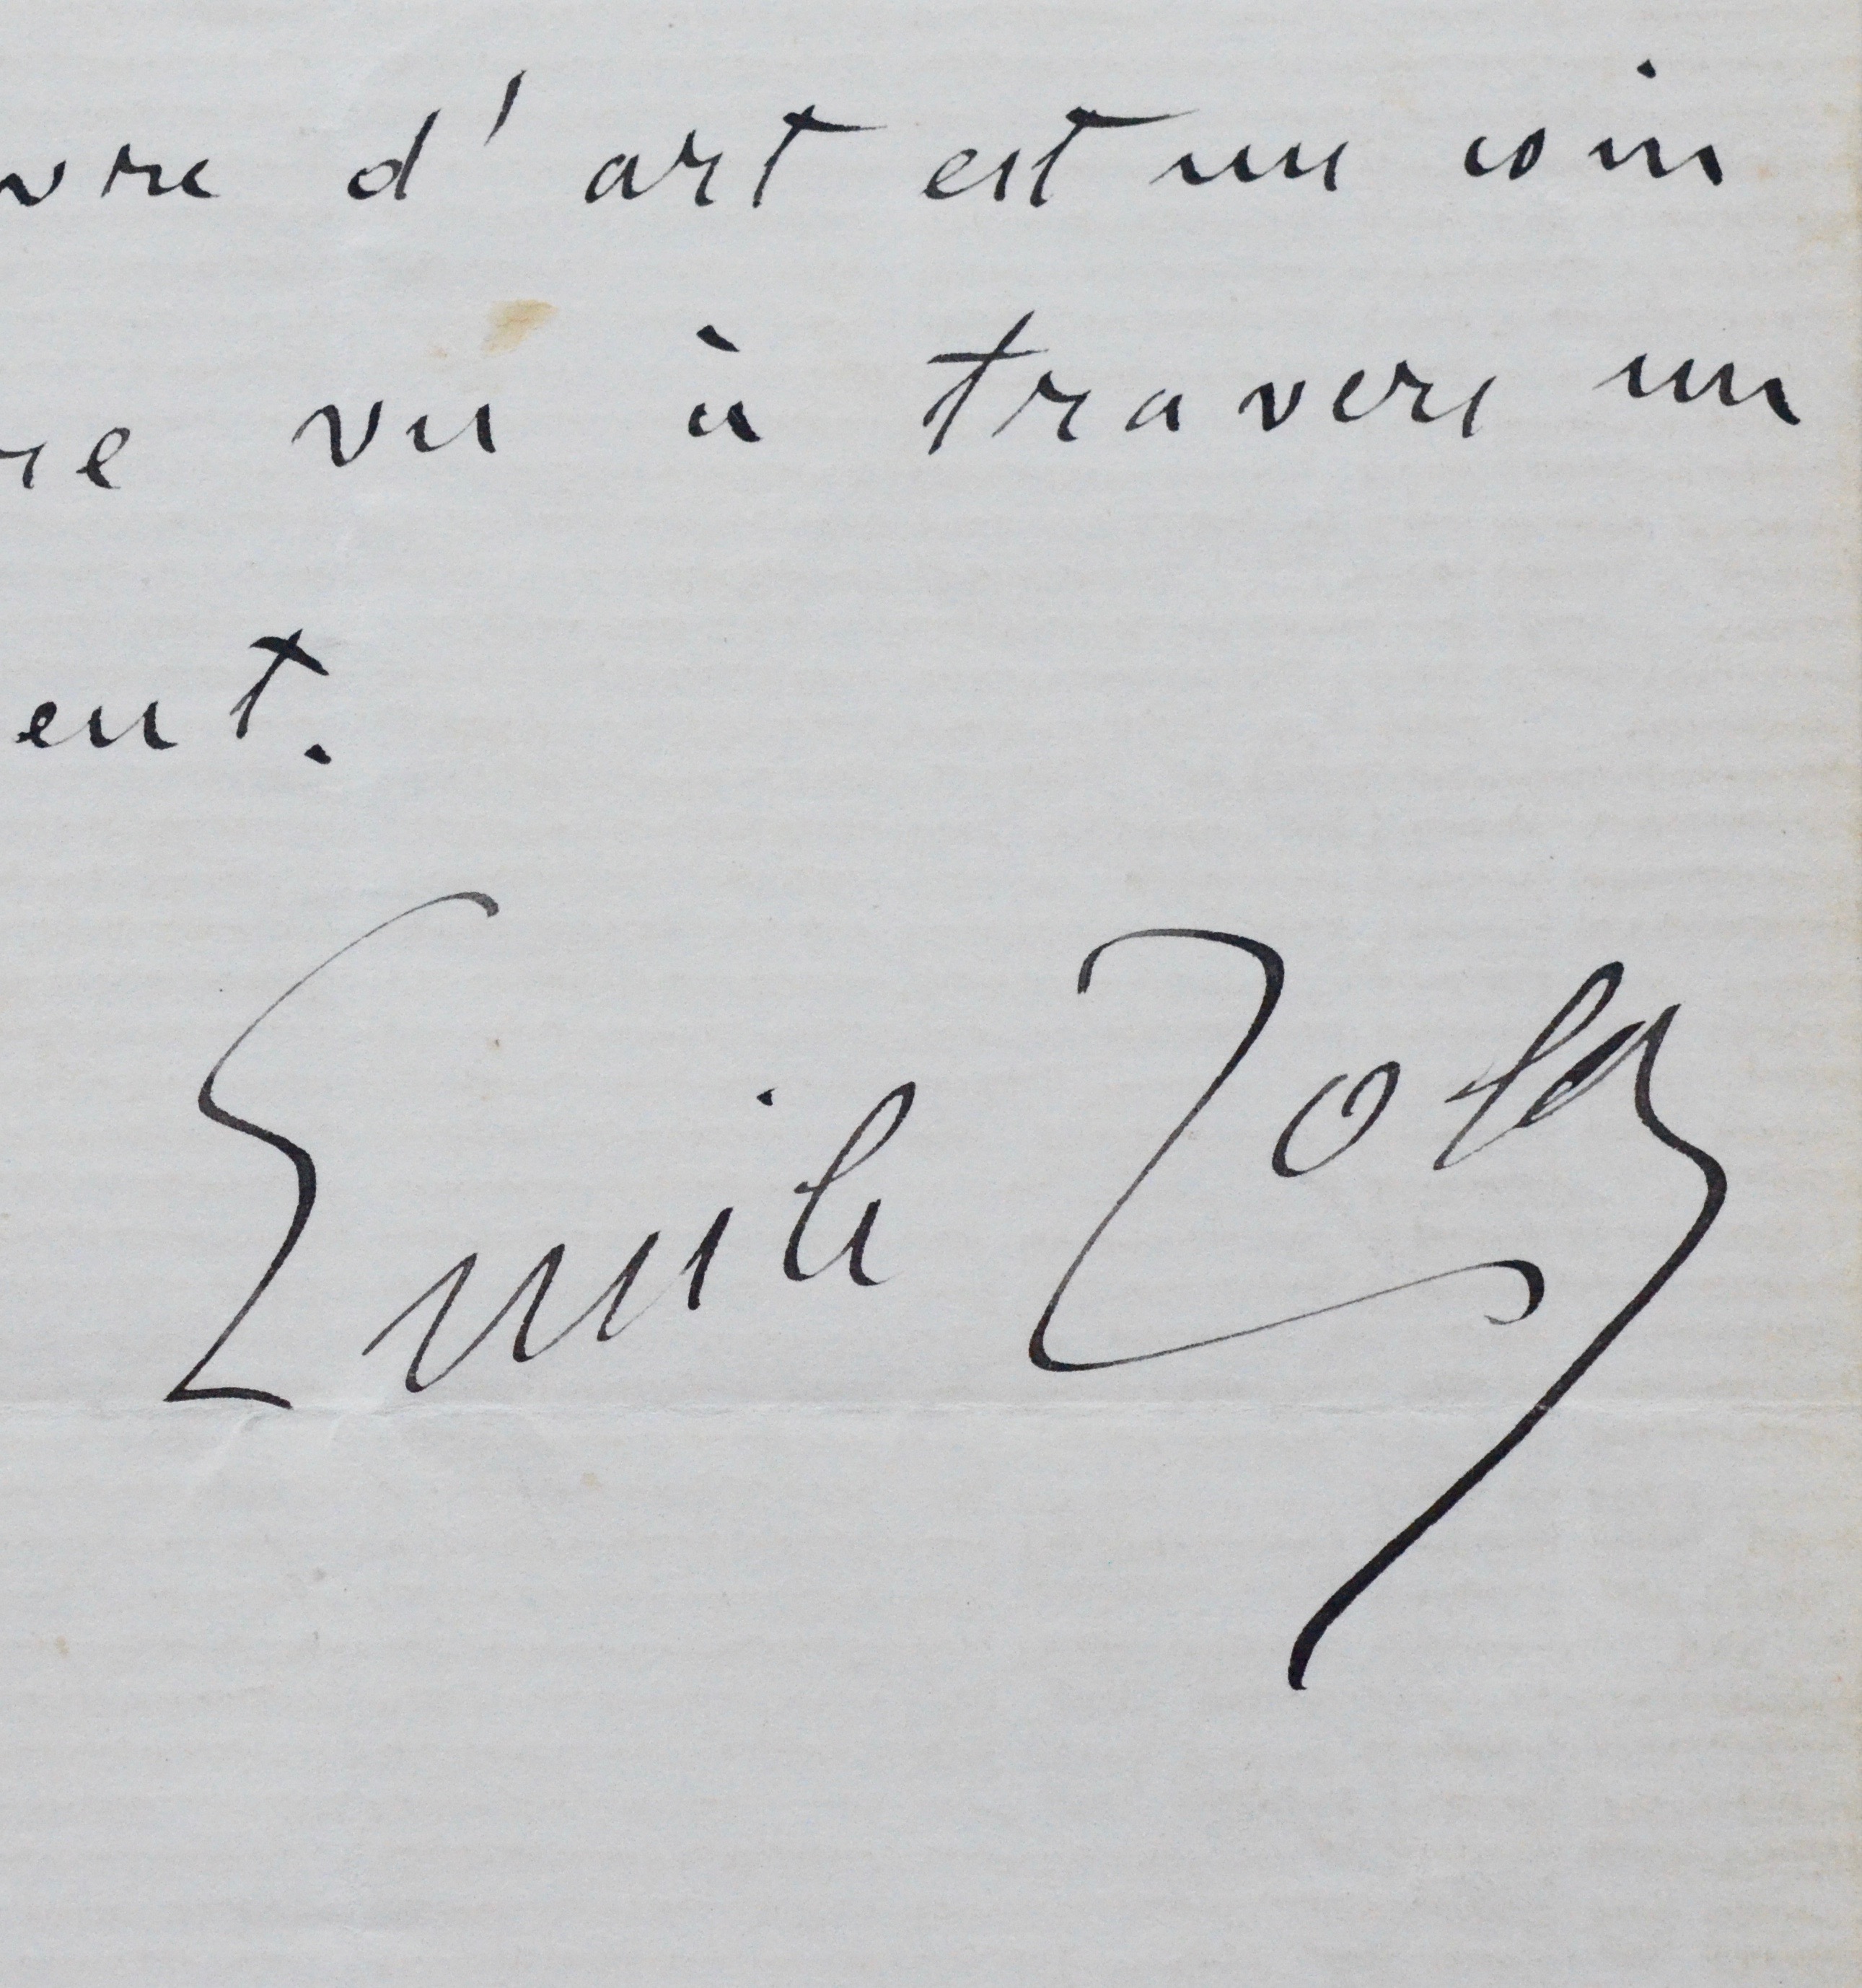 vre d'art est un coin
re vu à travers un
ent.
Emile Zola